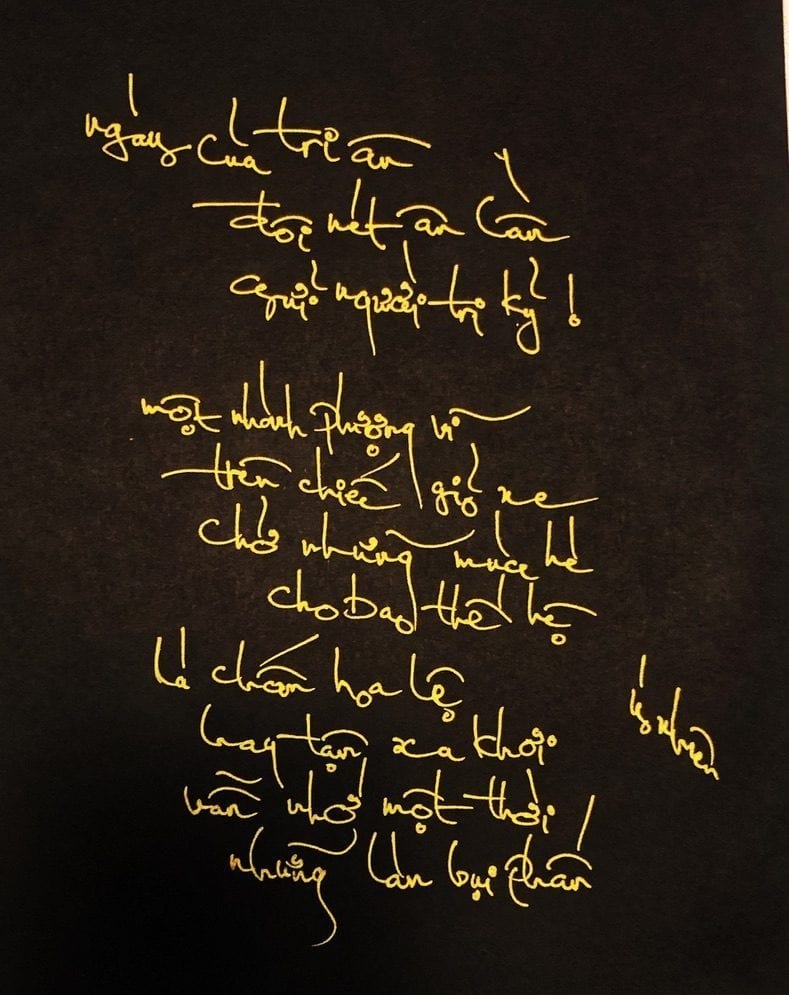 ngày của tri ân
đôi nét ân cần
gửi người tri kỷ!
một nhành phượng vĩ
trên chiếc giỏ xe
chở những mùa hè
cho bao thế hệ
là chốn hoa lệ
hay tận xa khơi
vẫn nhớ một thời
những làn bụi phấn
nhiên